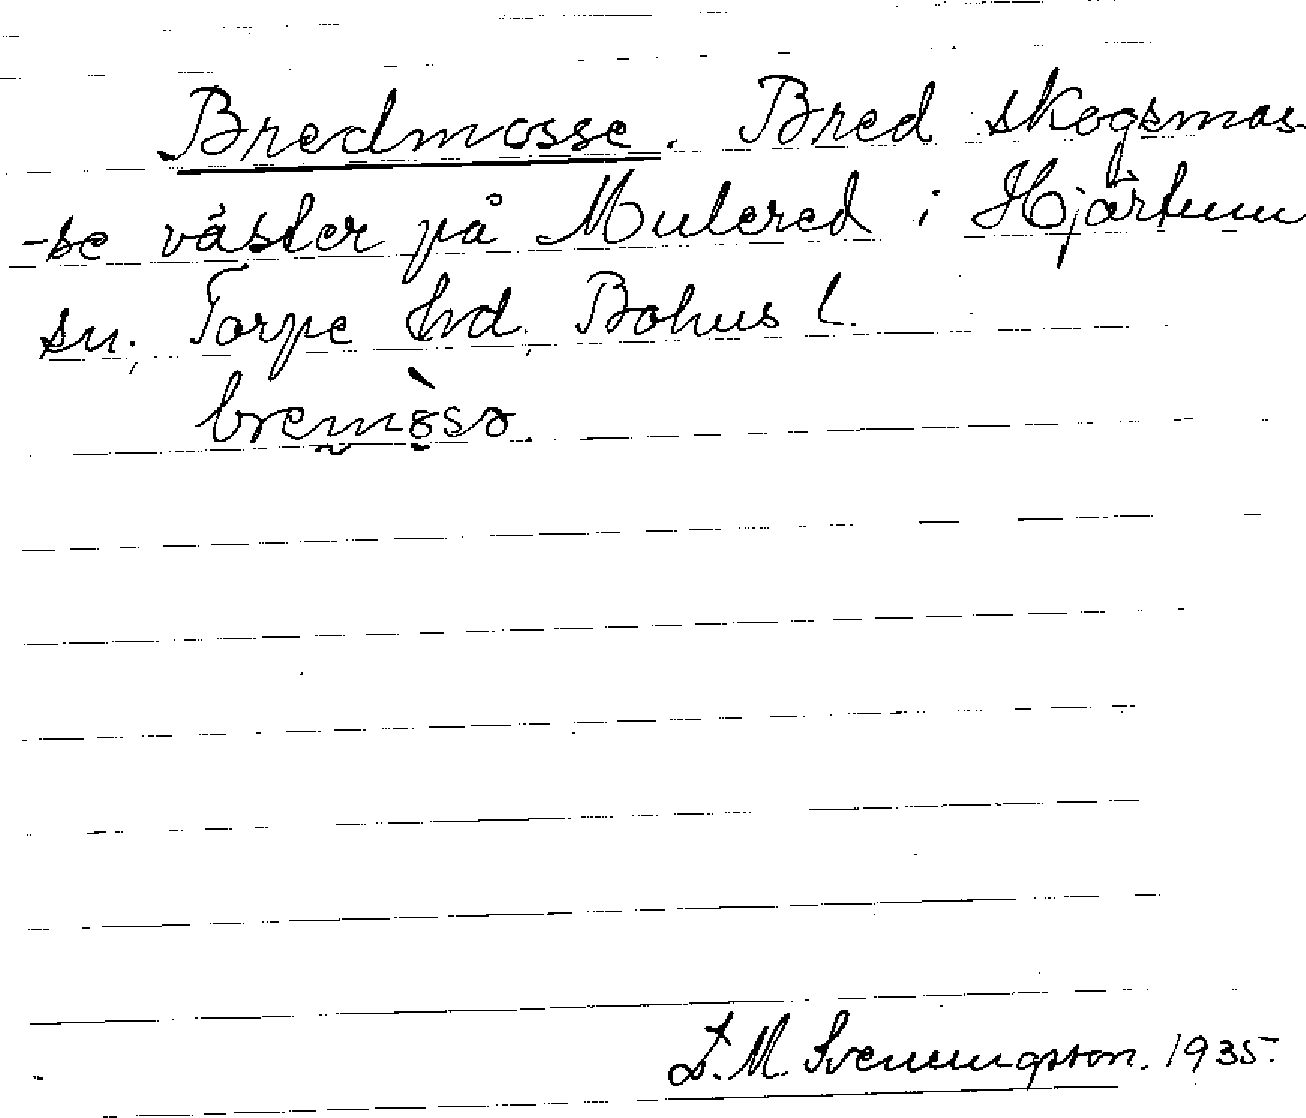 Bredmosse. Bred skogsmos-
-se väster på Mulered i Hjärtum
sn., Torpe hrd, Bohus l.
bremòsə.
L. M. Svenningsson. 1935.